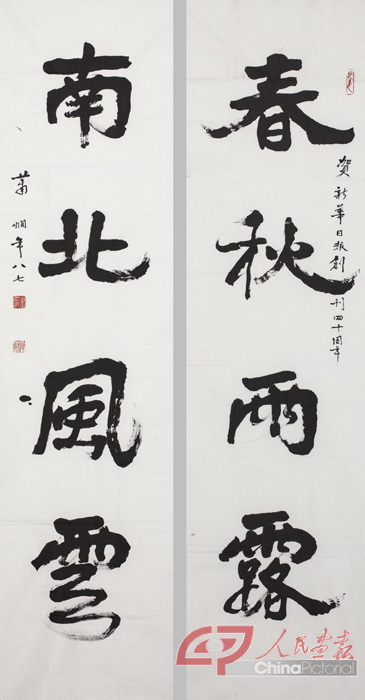 春秋雨露
賀新華日报創刊四十周年
南北風雲
萧嫻年八七
人民画报
ChinaPictorial